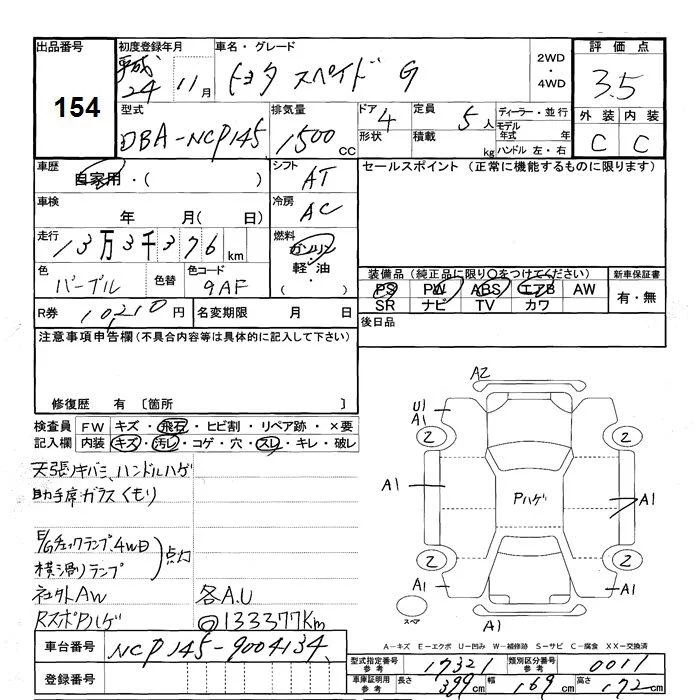 出品番号
154
初度登録年月
平成
24 11月
車名・グレード
トヨタ スペイド G
2WD
・
4WD
評価点
3.5
型式
DBA-NCP145
排気量
1500cc
ドア
4
形状
定員
5人
積載
kg
ディーラー・並行
モデル年式 年
ハンドル 左・右
外装 内装
C C
車歴
自家用・( )
シフト
AT
セールスポイント (正常に機能するものに限ります)
車検
年 月( 日)
冷房
AC
走行
13万3千376km
燃料
ガソリン
軽・油
・
色
パープル
色替
色コード
9AF
装備品(純正品に限り○をつけてください)
新車保証書
PS PW ABS エアB AW
有・無
SR ナビ TV カワ
R券 10,210円
名変期限 月 日
後日品
注意事項申告欄(不具合内容等は具体的に記入して下さい)
修復歴 有 〔箇所 〕
検査員
記入欄
FW キズ・飛石・ヒビ割・リペア跡・×要
内装 キズ・汚レ・コゲ・穴・スレ・キレ・破レ
天張りキバミ、ハンドルハゲ
助手席ガラスくもり
E/Gチェックランプ、4WD
横滑りランプ
点灯
社外AW
各A.U
RスポPハゲ
133377Km
A2
U1
A1
2
2
A1
Pハゲ
A1
2
2
A1
A1
スペア
A1
A-キズ E-エクボ U-凹み W-補修跡 S-サビ C-腐食 XX-交換済
車台番号
NCP145-9004134
登録番号
型式指定番号
参考
17321
類別区分番号
参考
0011
車庫証明用
参考
長さ
399cm
幅
169cm
高さ
172cm